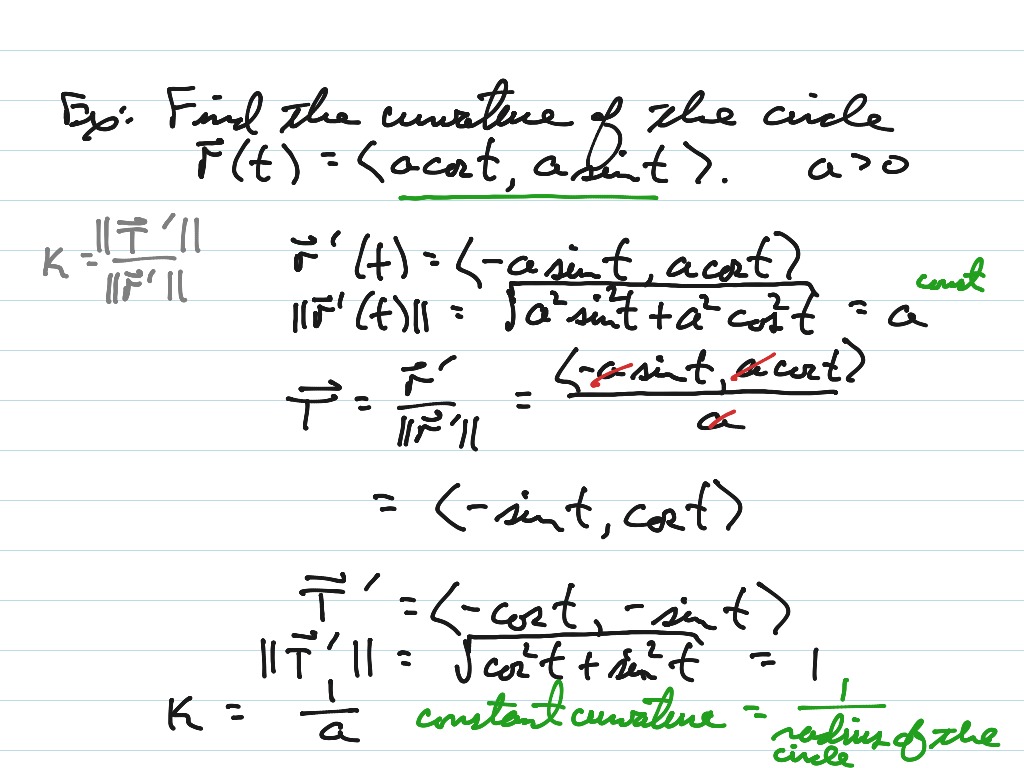 Ex: Find the curvature of the circle
r⃗(t) = ⟨a cos t, a sin t⟩. a > 0
K = ||T⃗'|| / ||r⃗'||
r⃗'(t) = ⟨-a sin t, a cos t⟩
||r⃗'(t)|| = √(a² sin² t + a² cos² t) = a const
T⃗ = r⃗' / ||r⃗'|| = ⟨-a sin t, a cos t⟩ / a
= ⟨-sin t, cos t⟩
T⃗' = ⟨-cos t, -sin t⟩
||T⃗'|| = √(cos² t + sin² t) = 1
K = 1/a constant curvature = 1 / radius of the circle